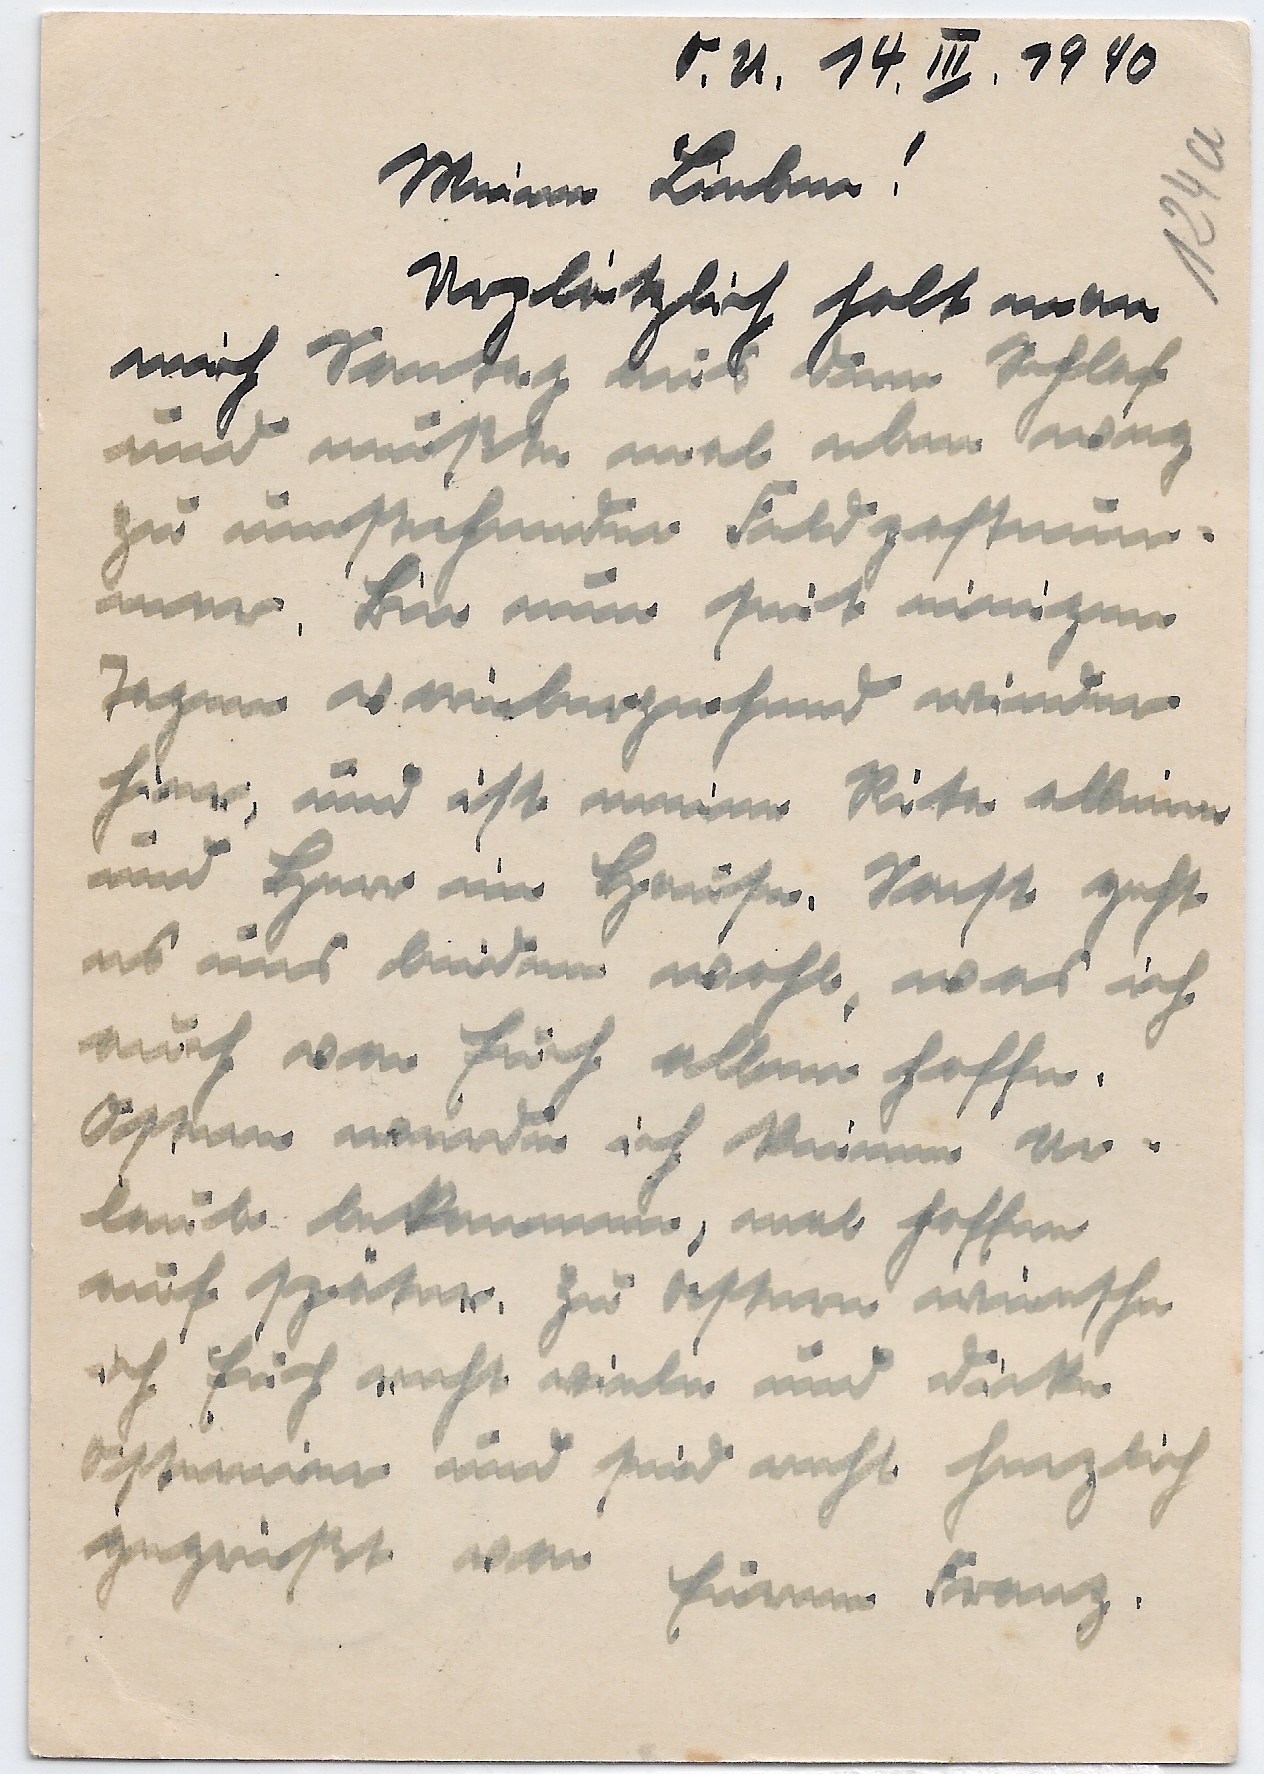 O.U. 14. III. 1940
124a
Meine Lieben!
Urplötzlich holt man
mich Sontag aus dem Schlaf
und mußte mal eben weg
zu umstehender Feldpostnum-
mer. Bin nun seit einigen
Tagen vorübergehend wieder
hier, und ist meine Rita alleine
und Herr im Hause. Sonst geht
es uns beiden wohl, was ich
auch von Euch allen hoffe.
Ostern werde ich keinen Ur-
laub bekommen, mal hoffen
auf später. Zu Ostern wünsche
ich Euch recht viele und dicke
Ostereier und seid recht herzlich
gegrüßt von
Eurem Franz.